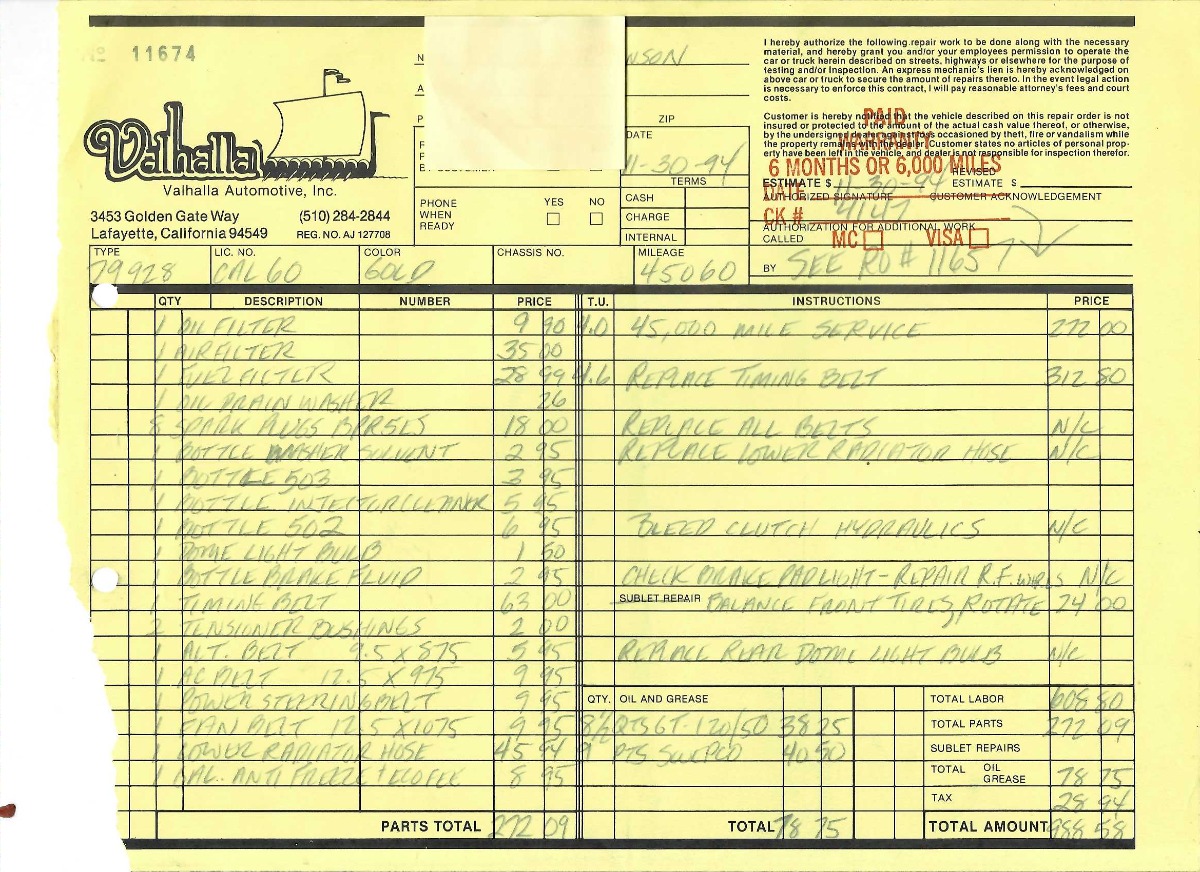 Nº 11674
Valhalla
Valhalla Automotive, Inc.
3453 Golden Gate Way (510) 284-2844
Lafayette, California 94549 REG. NO. AJ 127708
NSON
ZIP
DATE
11-30-94
TERMS
CASH
CHARGE
INTERNAL
PHONE WHEN READY YES NO
I hereby authorize the following repair work to be done along with the necessary
material, and hereby grant you and/or your employees permission to operate the
car or truck herein described on streets, highways or elsewhere for the purpose of
testing and/or inspection. An express mechanic's lien is hereby acknowledged on
above car or truck to secure the amount of repairs thereto. In the event legal action
is necessary to enforce this contract, I will pay reasonable attorney's fees and court
costs.
Customer is hereby notified that the vehicle described on this repair order is not
insured or protected to the amount of the actual cash value thereof, or otherwise,
by the undersigned dealer against loss occasioned by theft, fire or vandalism while
the property remains with the dealer. Customer states no articles of personal prop-
erty have been left in the vehicle, and dealer is not responsible for inspection therefor.
PAID
WARRANTY
6 MONTHS OR 6,000 MILES
DATE 11-30-94
CK # 4147
MC VISA
ESTIMATE $ REVISED ESTIMATE $
AUTHORIZED SIGNATURE CUSTOMER ACKNOWLEDGEMENT
AUTHORIZATION FOR ADDITIONAL WORK
CALLED
BY SEE RO # 1165
TYPE LIC. NO. COLOR CHASSIS NO. MILEAGE
79928 CAL 60 GOLD 45060
QTY DESCRIPTION NUMBER PRICE T.U. INSTRUCTIONS PRICE
1 OIL FILTER 9 90 4.0 45,000 MILE SERVICE 272 00
1 AIR FILTER 35 00
1 FUEL FILTER 28 99 4.6 REPLACE TIMING BELT 312 80
1 OIL DRAIN WASHER 26
8 SPARK PLUGS 18 00 REPLACE ALL BELTS N/C
1 BOTTLE WASHER SOLVENT 2 95 REPLACE LOWER RADIATOR HOSE N/C
1 BOTTLE 503 3 95
1 BOTTLE INJECTOR CLEANER 5 95
1 BOTTLE 502 6 95 BLEED CLUTCH HYDRAULICS N/C
1 DOME LIGHT BULB 1 50
1 BOTTLE BRAKE FLUID 2 95 CHECK BRAKE PAD LIGHT - REPAIR R.F. WIRES N/C
1 TIMING BELT 63 00 SUBLET REPAIR BALANCE FRONT TIRES, ROTATE 24 00
2 TENSIONER BUSHINGS 2 00
1 ALT. BELT 9.5 X 875 5 95 REPLACE REAR DOME LIGHT BULB N/C
1 AC BELT 12.5 X 975 9 95
1 POWER STEERING BELT 9 95 QTY. OIL AND GREASE TOTAL LABOR 608 80
1 FAN BELT 12.5 X 1075 9 95 8½ QTS GT-1 20/50 38 25 TOTAL PARTS 272 09
1 LOWER RADIATOR HOSE 45 94 9 PTS SWEPCO 40 50 SUBLET REPAIRS
1 GAL. ANTI FREEZE 8 95 TOTAL OIL GREASE 78 75
TAX 28 94
PARTS TOTAL 272 09 TOTAL 78 75 TOTAL AMOUNT 988 58